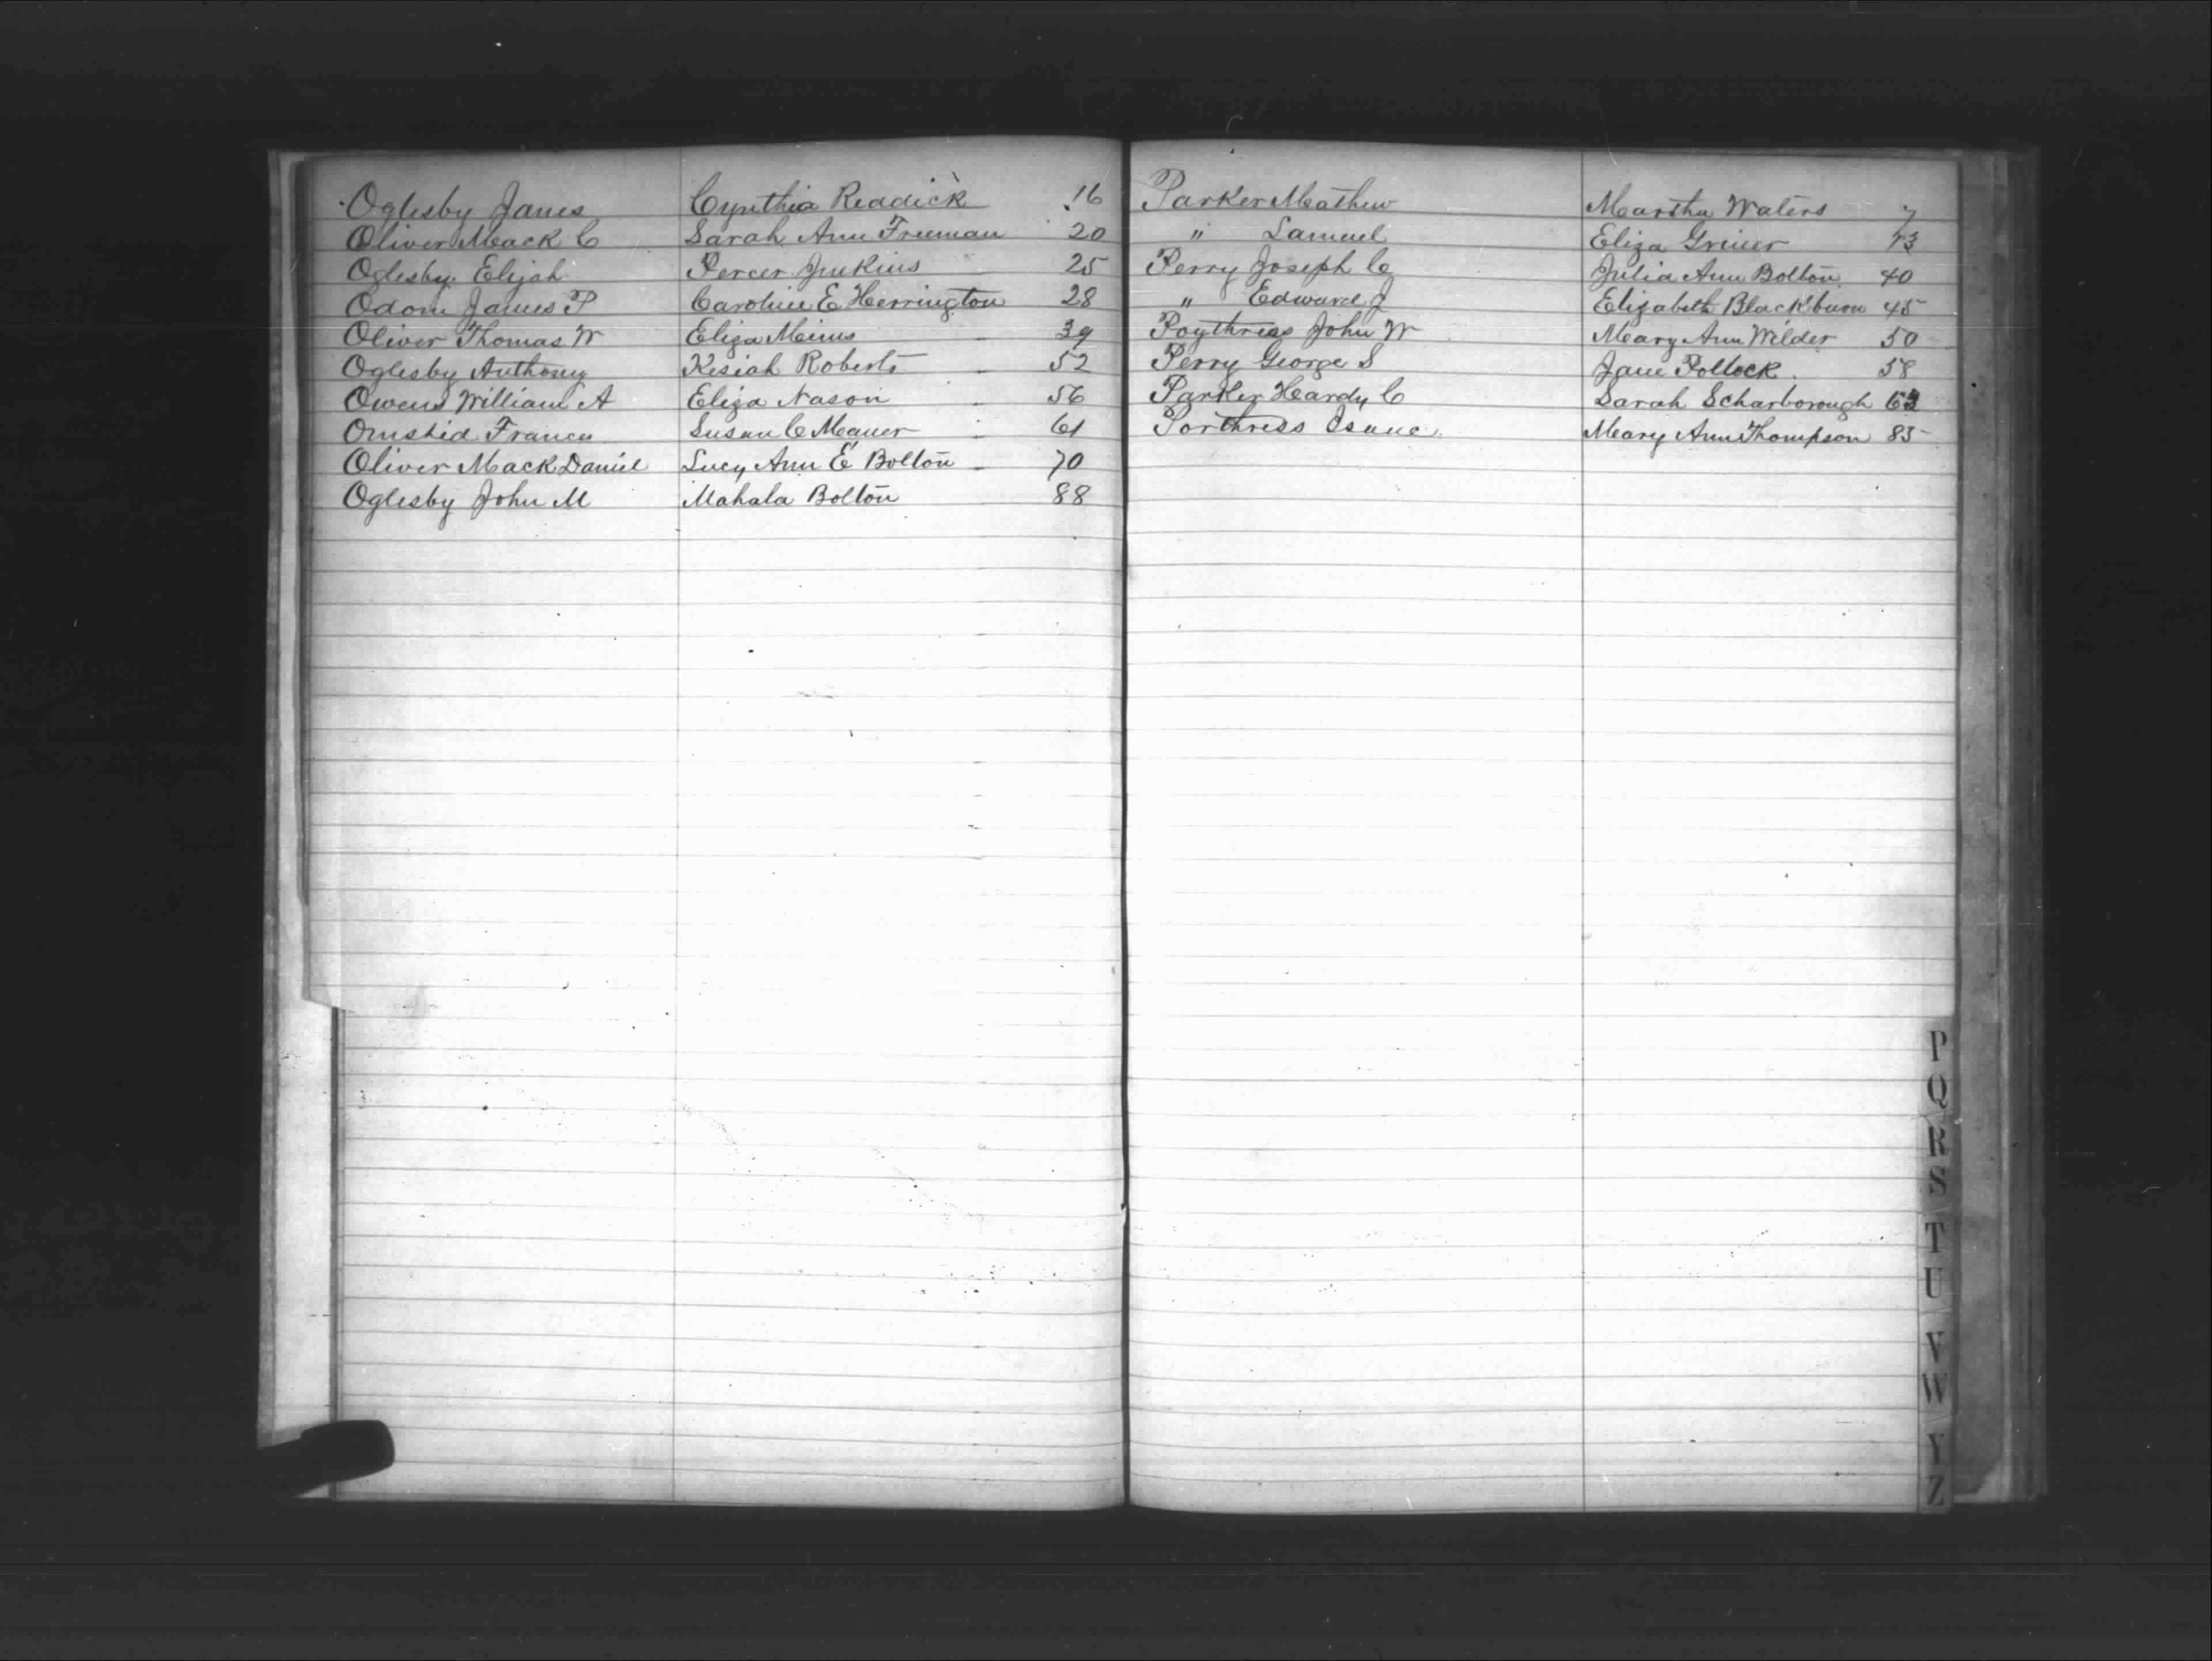 Oglesby James Cynthia Readick 16
Oliver Mack C Sarah Ann Freeman 20
Oglesby Elijah Percer Jenkins 25
Odom James P Caroline E Herrington 28
Oliver Thomas W Eliza Mims 39
Oglesby Anthony Kesiah Roberts 52
Owens William A Eliza Nason 56
Omstid Susan C Maner 61
Oliver Mack Daniel Lucy Ann E Bolton 70
Oglesby John M Mahala Bolton 88
Parker Mathew Martha Waters 7
" Samuel Eliza Griner 13
Perry Joseph C Julia Ann Bolton 40
" Edward J Elizabeth Blackburn 45
Poythress John W Mary Ann Wilder 50
Perry George S Jane Pollock 58
Parker Hardy C Sarah Scharborough
Porthress Isaac Mary Ann Thompson 85
P
Q
R
S
T
U
V
W
Y
Z